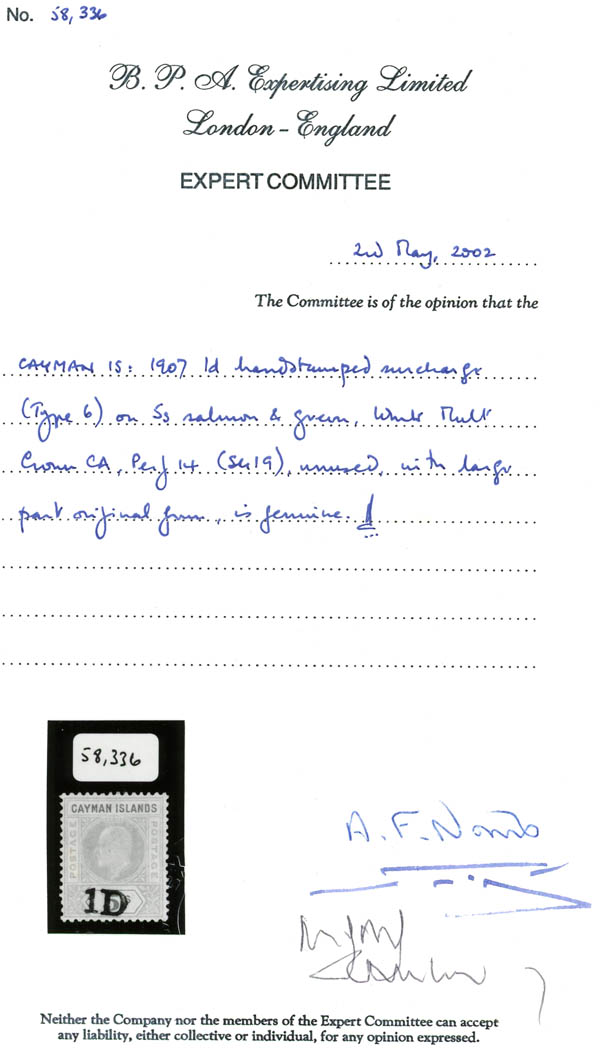 No. 58,336
B. P. A. Expertising Limited
London - England
EXPERT COMMITTEE
2nd May, 2002
The Committee is of the opinion that the
CAYMAN IS: 1907 1d handstamped surcharge
(Type 6) on 5s salmon & green, Wmk Mult
Crown CA, Perf 14 (SG19), unused, with large
part original gum, is genuine.
58,336
CAYMAN ISLANDS
POSTAGE
POSTAGE
1D
A. F. Norris
Neither the Company nor the members of the Expert Committee can accept
any liability, either collective or individual, for any opinion expressed.